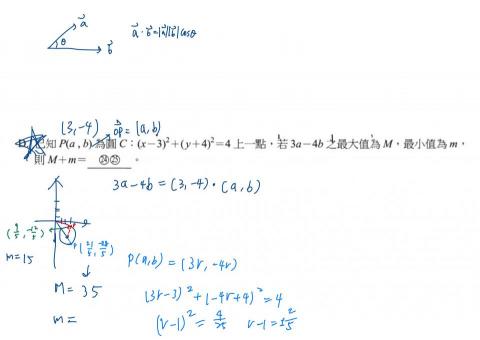 a⃗
θ
b⃗
a⃗·b⃗=|a⃗||b⃗|cosθ
(3,-4) OP⃗=(a,b)
已知P(a,b)為圓C:(x−3)²+(y+4)²=4上一點,若3a−4b之最大值為M,最小值為m,
則M+m= ㉔㉕ 。
3a-4b=(3,-4)·(a,b)
(9/5, -12/5)
P(21/5, -28/5)
m=15
M=35
m=
P(a,b)=(3r,-4r)
(3r-3)²+(-4r+4)²=4
(r-1)²=4/25 r-1=±2/5